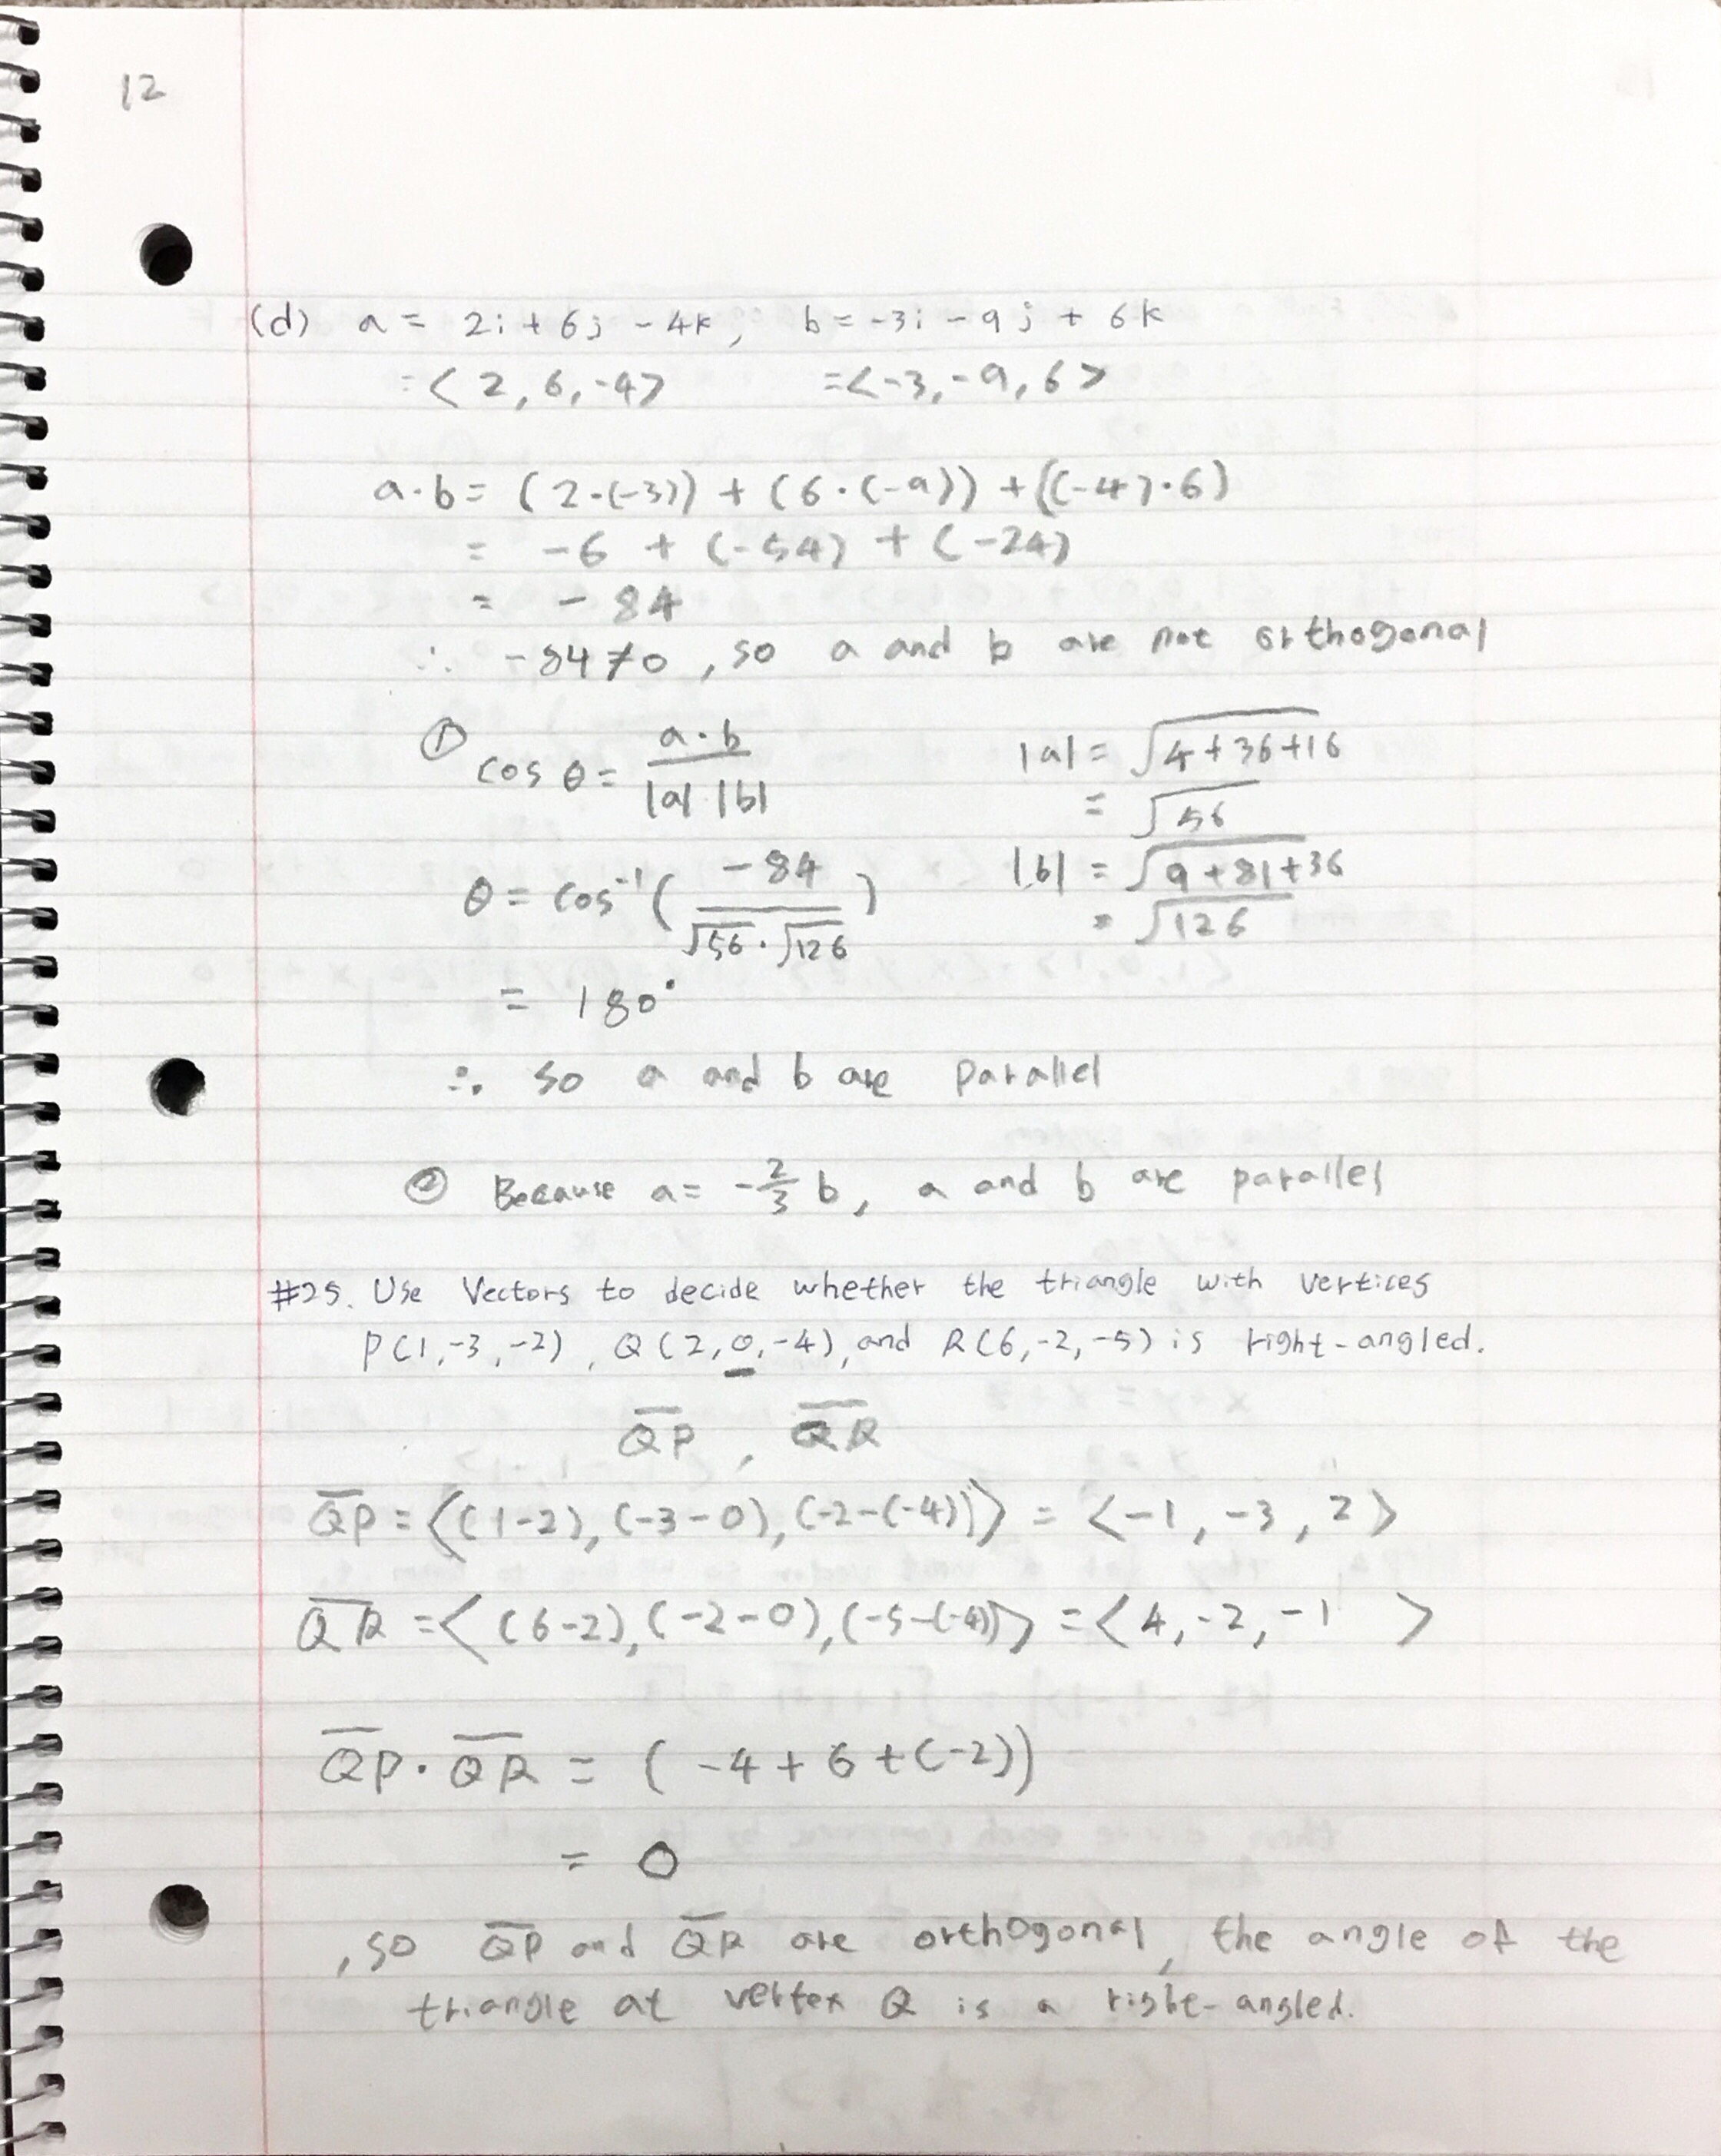 12
(d) a = 2i + 6j - 4k, b = -3i - 9j + 6k
= < 2, 6, -4> =<-3, -9, 6>
a·b = (2·(-3)) + (6·(-9)) + ((-4)·6)
= -6 + (-54) + (-24)
= -84
∴ -84≠0, so a and b are not orthogonal
① cos θ = a·b / |a| |b| |a| = √4+36+16
= √56
θ = cos⁻¹( -84 / √56 · √126 ) |b| = √9+81+36
= √126
= 180°
∴ so a and b are parallel
② Because a = -2/3 b, a and b are parallel
#25. Use Vectors to decide whether the triangle with vertices
P(1,-3,-2), Q(2,0,-4), and R(6,-2,-5) is right-angled.
Q̅P̅, Q̅R̅
Q̅P̅ = <(1-2), (-3-0), (-2-(-4))> = <-1, -3, 2>
Q̅R̅ = <(6-2), (-2-0), (-5-(-4))> = <4, -2, -1>
Q̅P̅ · Q̅R̅ = ( -4 + 6 + (-2))
= 0
, so Q̅P̅ and Q̅R̅ are orthogonal, the angle of the
triangle at vertex Q is a right-angled.